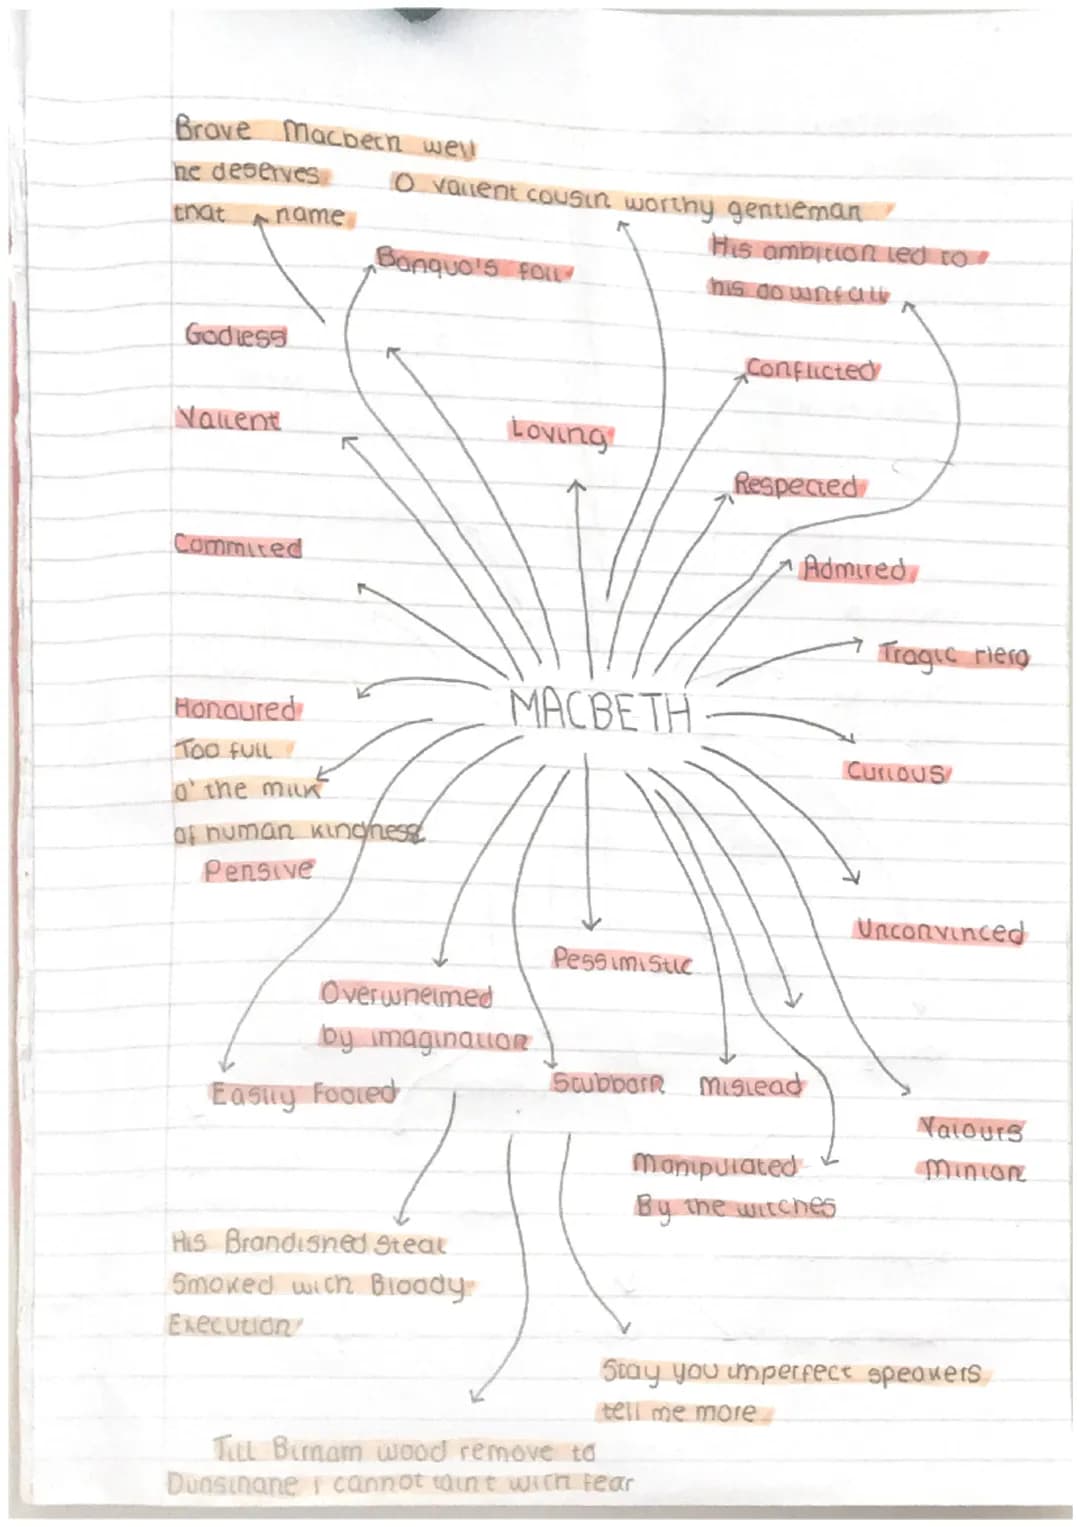 Brave Macbeth well
he deserves
that name
O valient cousin worthy gentleman
Banquo's foil
His ambition led to
his downfall
Godless
Conflicted
Valient
Loving
Respected
Commited
Admired
Tragic Hero
Honoured
MACBETH
Too full
o' the milk
of human kindness
Curious
Pensive
Unconvinced
Pessimistic
Overwhelmed
by imagination
Easily Fooled
Stubborn
Mislead
Valours
Minion
Manipulated
By the witches
His Brandished Steal
Smoked with Bloody
Execution
Stay you imperfect speakers
tell me more
Till Birnam wood remove to
Dunsinane i cannot taint with fear